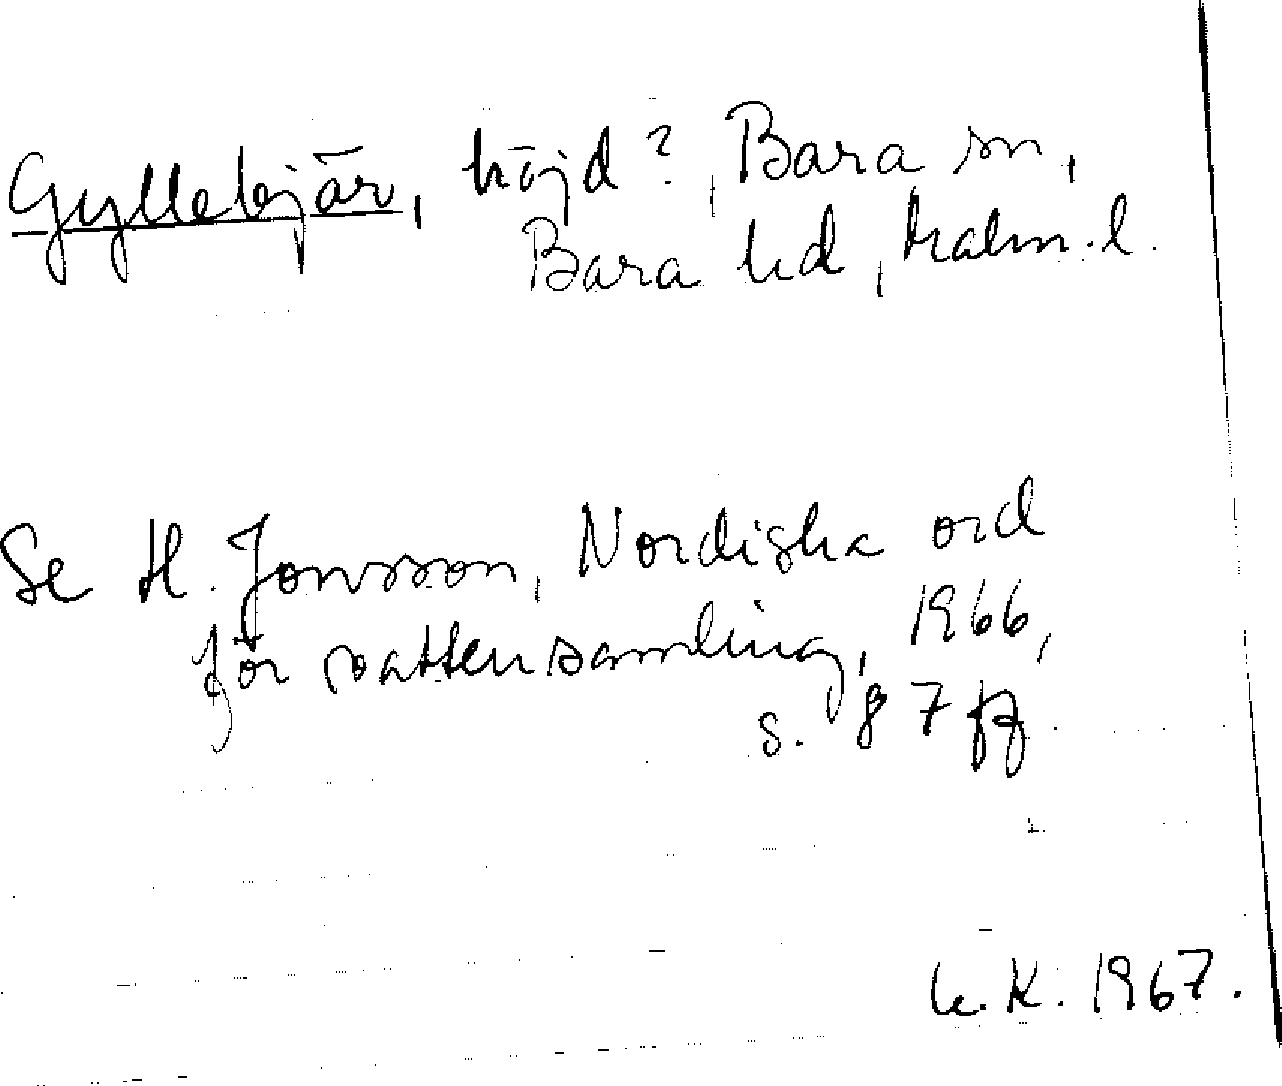 Gyllebjär, höjd?, Bara sn,
Bara hd, Malm. l.
Se H. Jonsson, Nordiska ord
för vattensamling, 1966,
s. 87 ff.
K. 1967.